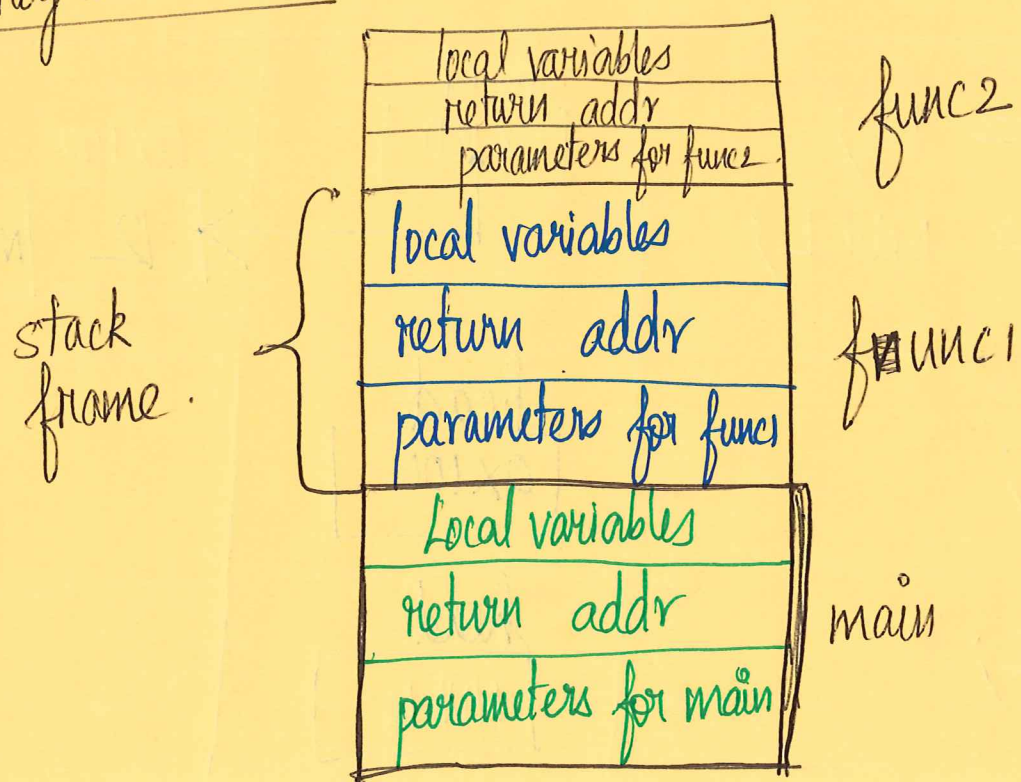 local variables
return addr
parameters for func2.
func2
local variables
return addr
parameters for func1
stack
frame.
func1
Local variables
return addr
parameters for main
main